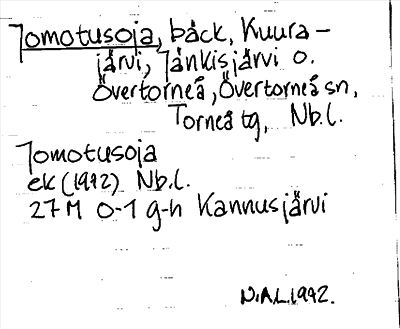 Jomotusoja, bäck, Kuura-
järvi, Jänkisjärvi o.
Övertorneå, Övertorneå sn,
Torneå tg, Nb.l.
Jomotusoja
ek (1992) Nb.l.
27M 0-1 g-h Kannusjärvi
N.A.L. 1992.